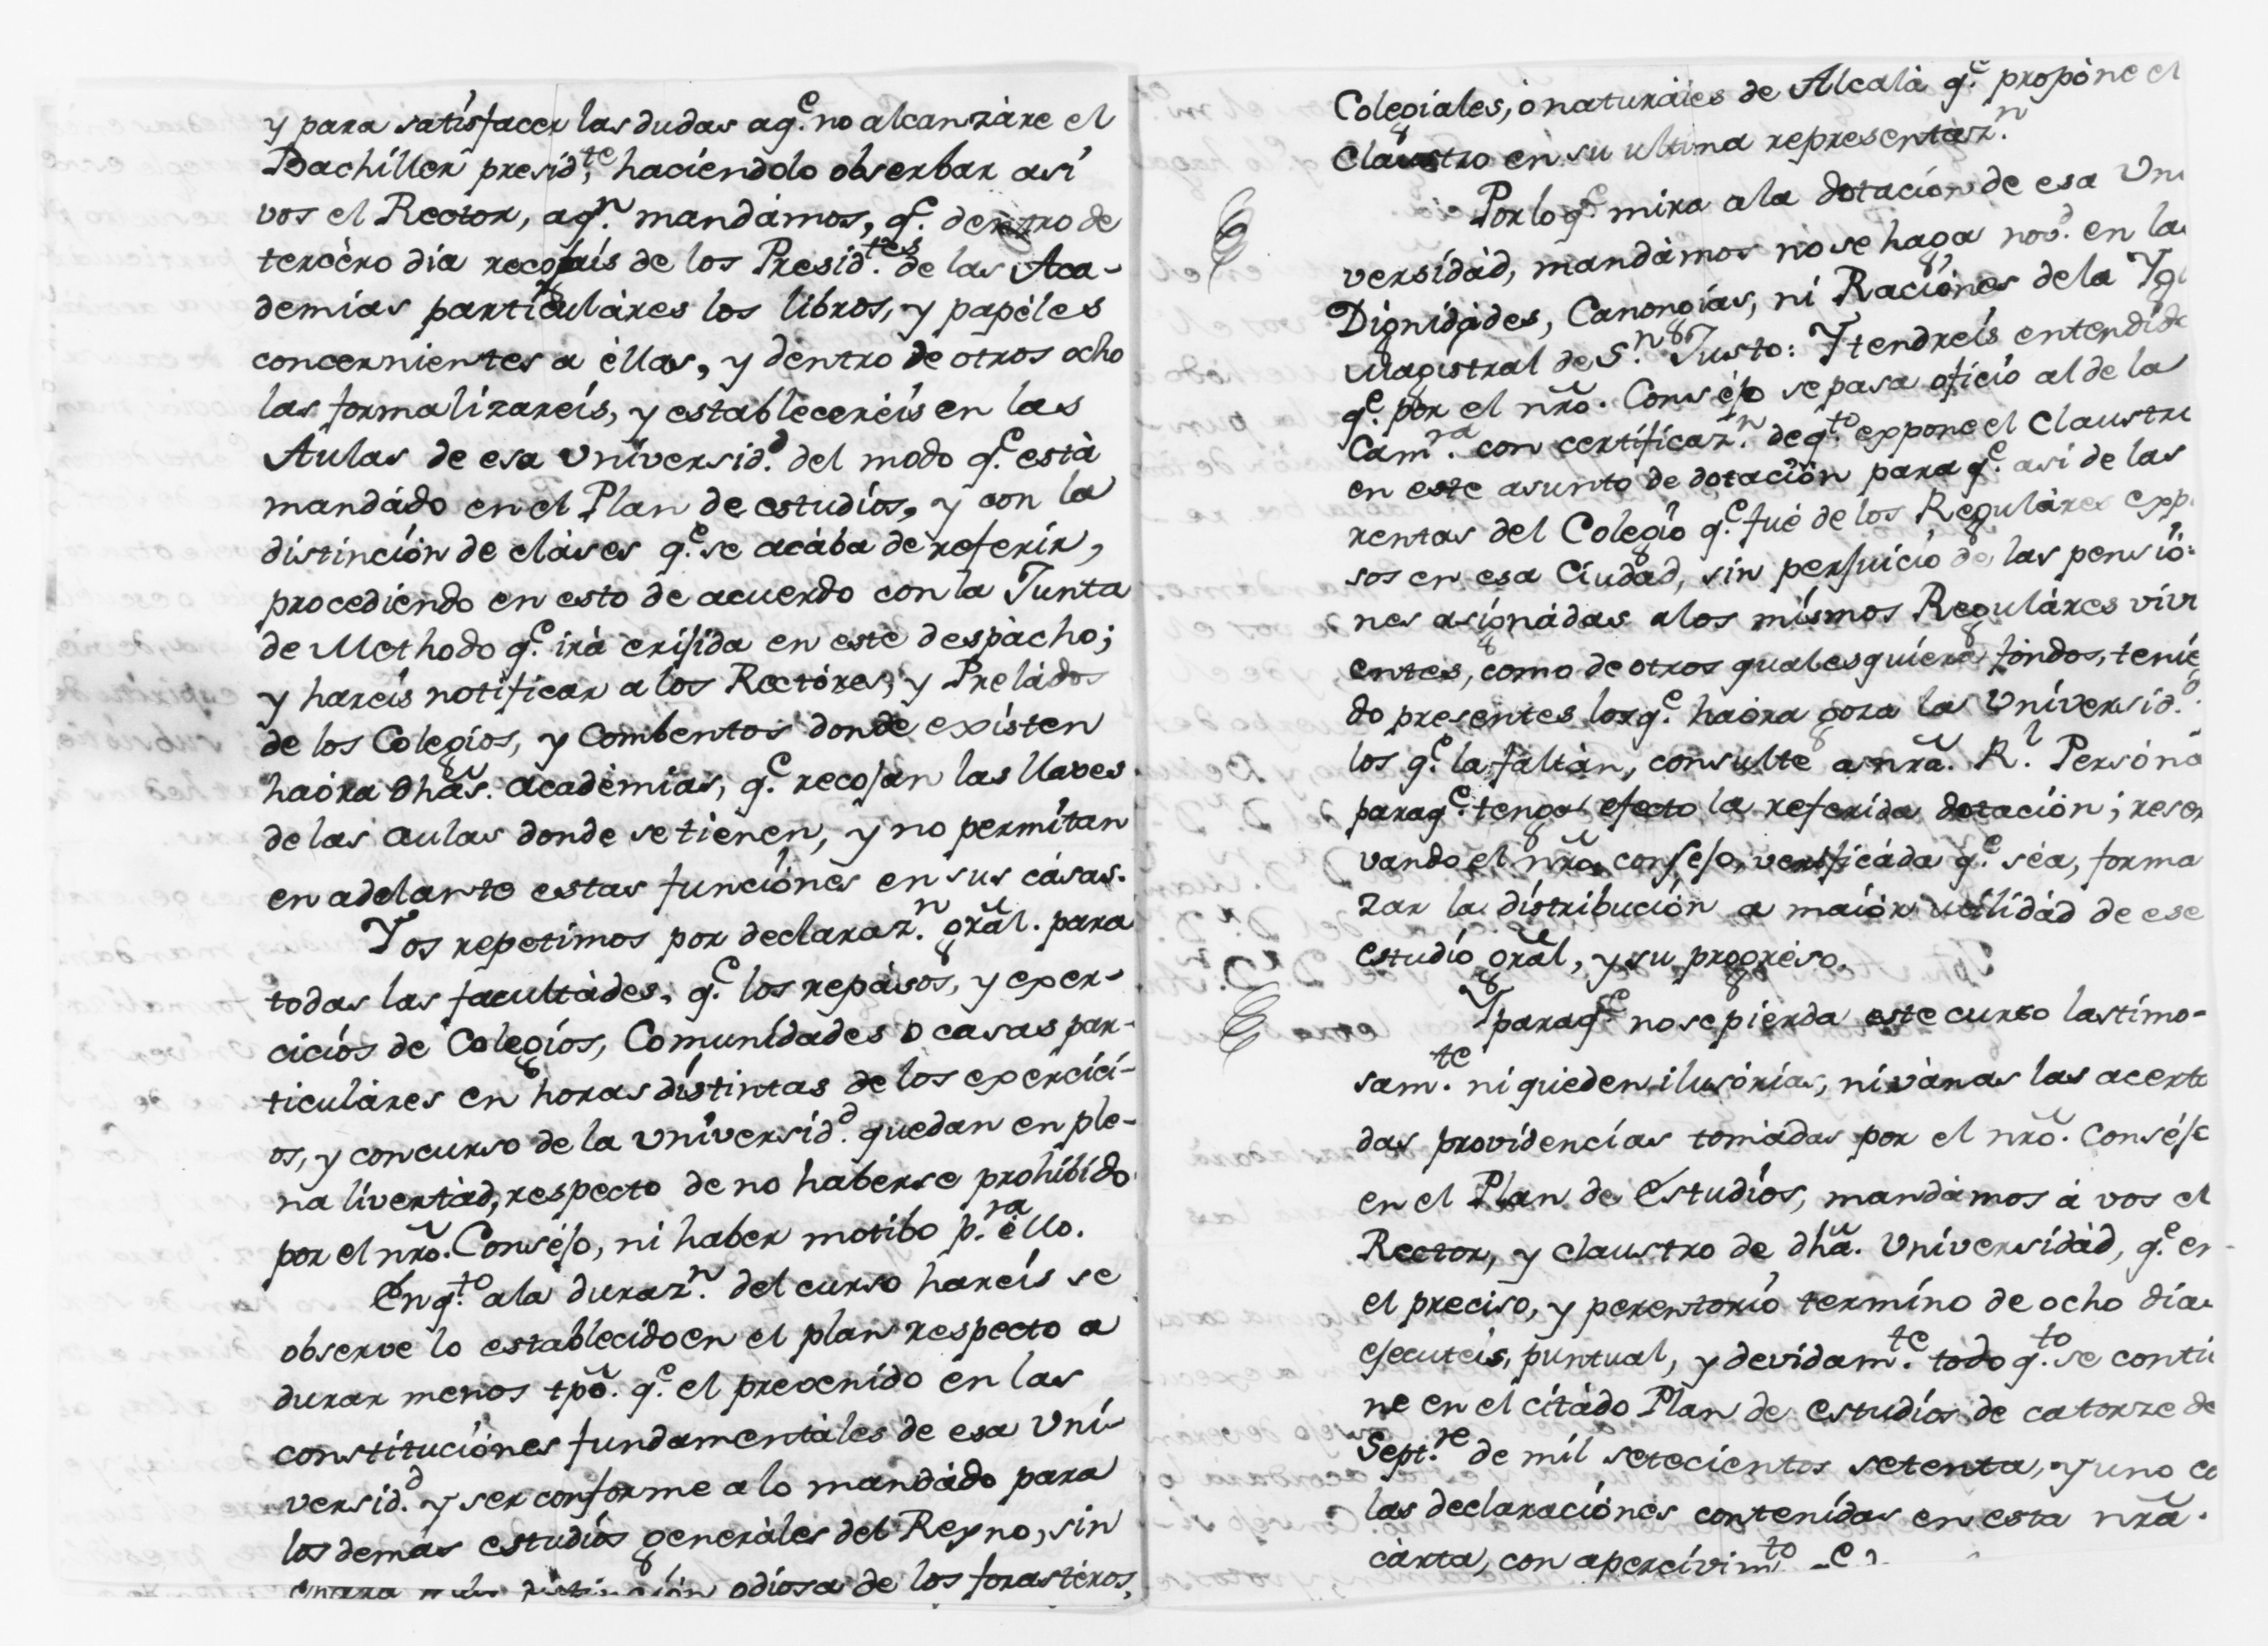 y para satisfacer las dudas a q.e no alcanzàre el
Bachiller presid.te, haciendolo obserbar asi
vos el Rector, a q.n mandàmos, q.e dentro de
tercèro dia recojais de los Presid.tes de las Aca-
demias particulàres los libros, y papèles
concernientes a èllas, y dentro de otros ocho
las formalizareis, y establecerèis en las
Aulas de esa Universid.d del modo q.e està
mandàdo en el Plan de estudios, y con la
distinciòn de clàses q.e se acàba de referir,
procediendo en esto de acuerdo con la Junta
de Methodo q.e irà erijida en este despàcho;
y hareis notificar a los Rectòres, y Prelàdos
de los Colegios, y Combentos donde existen
haòra dhãs. acadèmias, q.e recojan las llaves
de las aulas donde se tienen, y no permitan
en adelante estas funciònes en sus càsas.
Y os repetimos por declaraz.n grãl. para
todas las facultàdes, q.e los repàsos, y exer-
cicios de Colegios, Comunidades o casas par-
ticulàres en horas distintas de los exercici-
os, y concurso de la Universid.d quedan en ple-
na livertàd, respecto de no haberse prohibido
por el nrõ. Consèjo, ni haber motibo p.ra èllo.
En q.to a la duraz.n del curso hareis se
observe lo establecido en el plan respecto a
durar menos tpõ. q.e el prevenido en las
constituciònes fundamentàles de esa Uni-
versid.d y ser conforme a lo mandàdo para
los demàs estudios generàles del Reyno, sin
odiosa de los forastèros,
Colegiales, ò naturàles de Alcalà q.e propòne el
Claustro en su ultima representaz.n
Por lo q.e mira a la dotaciòn de esa Uni
versidàd, mandàmos no se haga nov.d en las
Dignidàdes, Canongìas, ni Raciònes de la Ygl
Magistral de S.n Justo: Y tendreis entendido
q.e por el nrõ. Consèjo se pasa oficio al de la
Cam.ra con certificaz.n de q.to expone el Claustro
en este asunto de dotaciòn para q.e asi de las
rentas del Colegio q.e fuè de los Regulàres exp
sos en esa Ciudad, sin perjuicio de las pensiò-
nes asignàdas a los mismos Regulàres vivi
entes, como de otros qualesquiera fondos, tenie
do presentes los q.e haòra goza la Universid.d
los q.e la faltàn, consulte a nrã. R.l Persòna
para q.e tenga efecto la referida dotaciòn; reser
vando el nrõ. consejo, verificàda q.e sèa, forma
zar la distribuciòn a maiòr utilidàd de ese
estudio grãl, y su progrèso.
Y para q.e no se pierda este curso lastimo-
sam.te ni queden ilusòrias, ni vànas las acerta
das providencias tomàdas por el nrõ. Consèjo
en el Plan de Estudios, mandàmos à vos el
Rector, y Claustro de dhã. Universidàd, q.e en
el preciso, y perentorio termino de ocho dias
ejecuteis, puntual, y devidam.te todo q.to se contie
ne en el citàdo Plan de estudios de catorze de
Sept.re de mil setecientos setenta, y uno co
las declaraciònes contenidas en esta nrã.
càrta, con apercivim.to